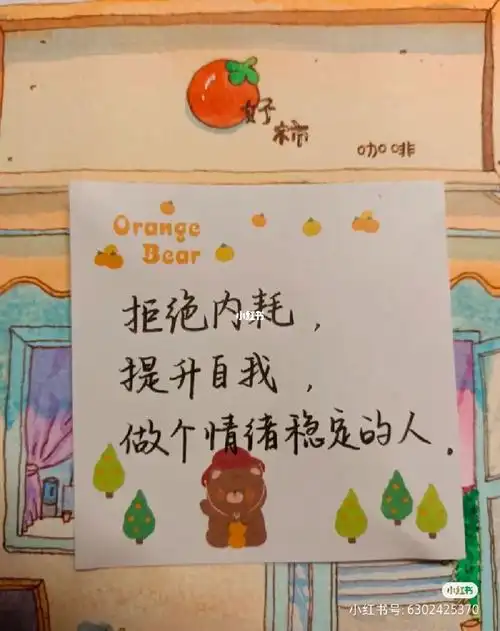 好柿
咖啡
Orange
Bear
拒绝内耗，
小红书
提升自我，
做个情绪稳定的人.
小红书
小红书号: 6302425370